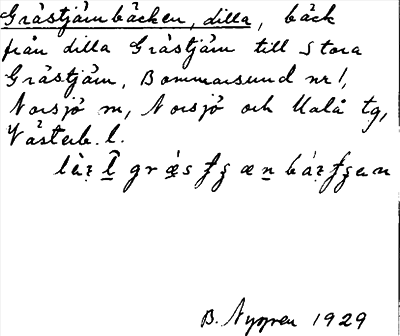 Gråstjärnbäcken, lilla, bäck
från lilla Gråstjärn till Stora
Gråstjärn, Bommarsund nr 1,
Norsjö sn, Norsjö och Malå tg,
Västerb. l.
B. Nygren 1929